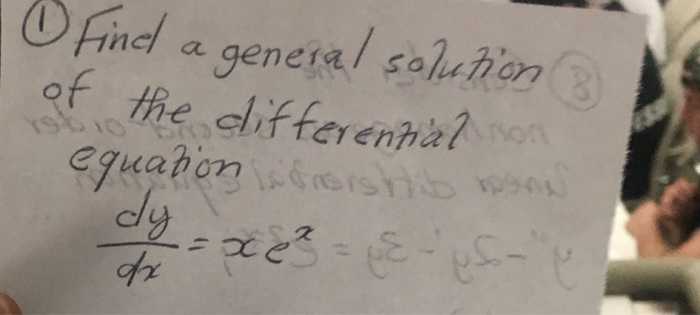 ① Find a general solution
of the differential
equation
dy/dx = xe^x